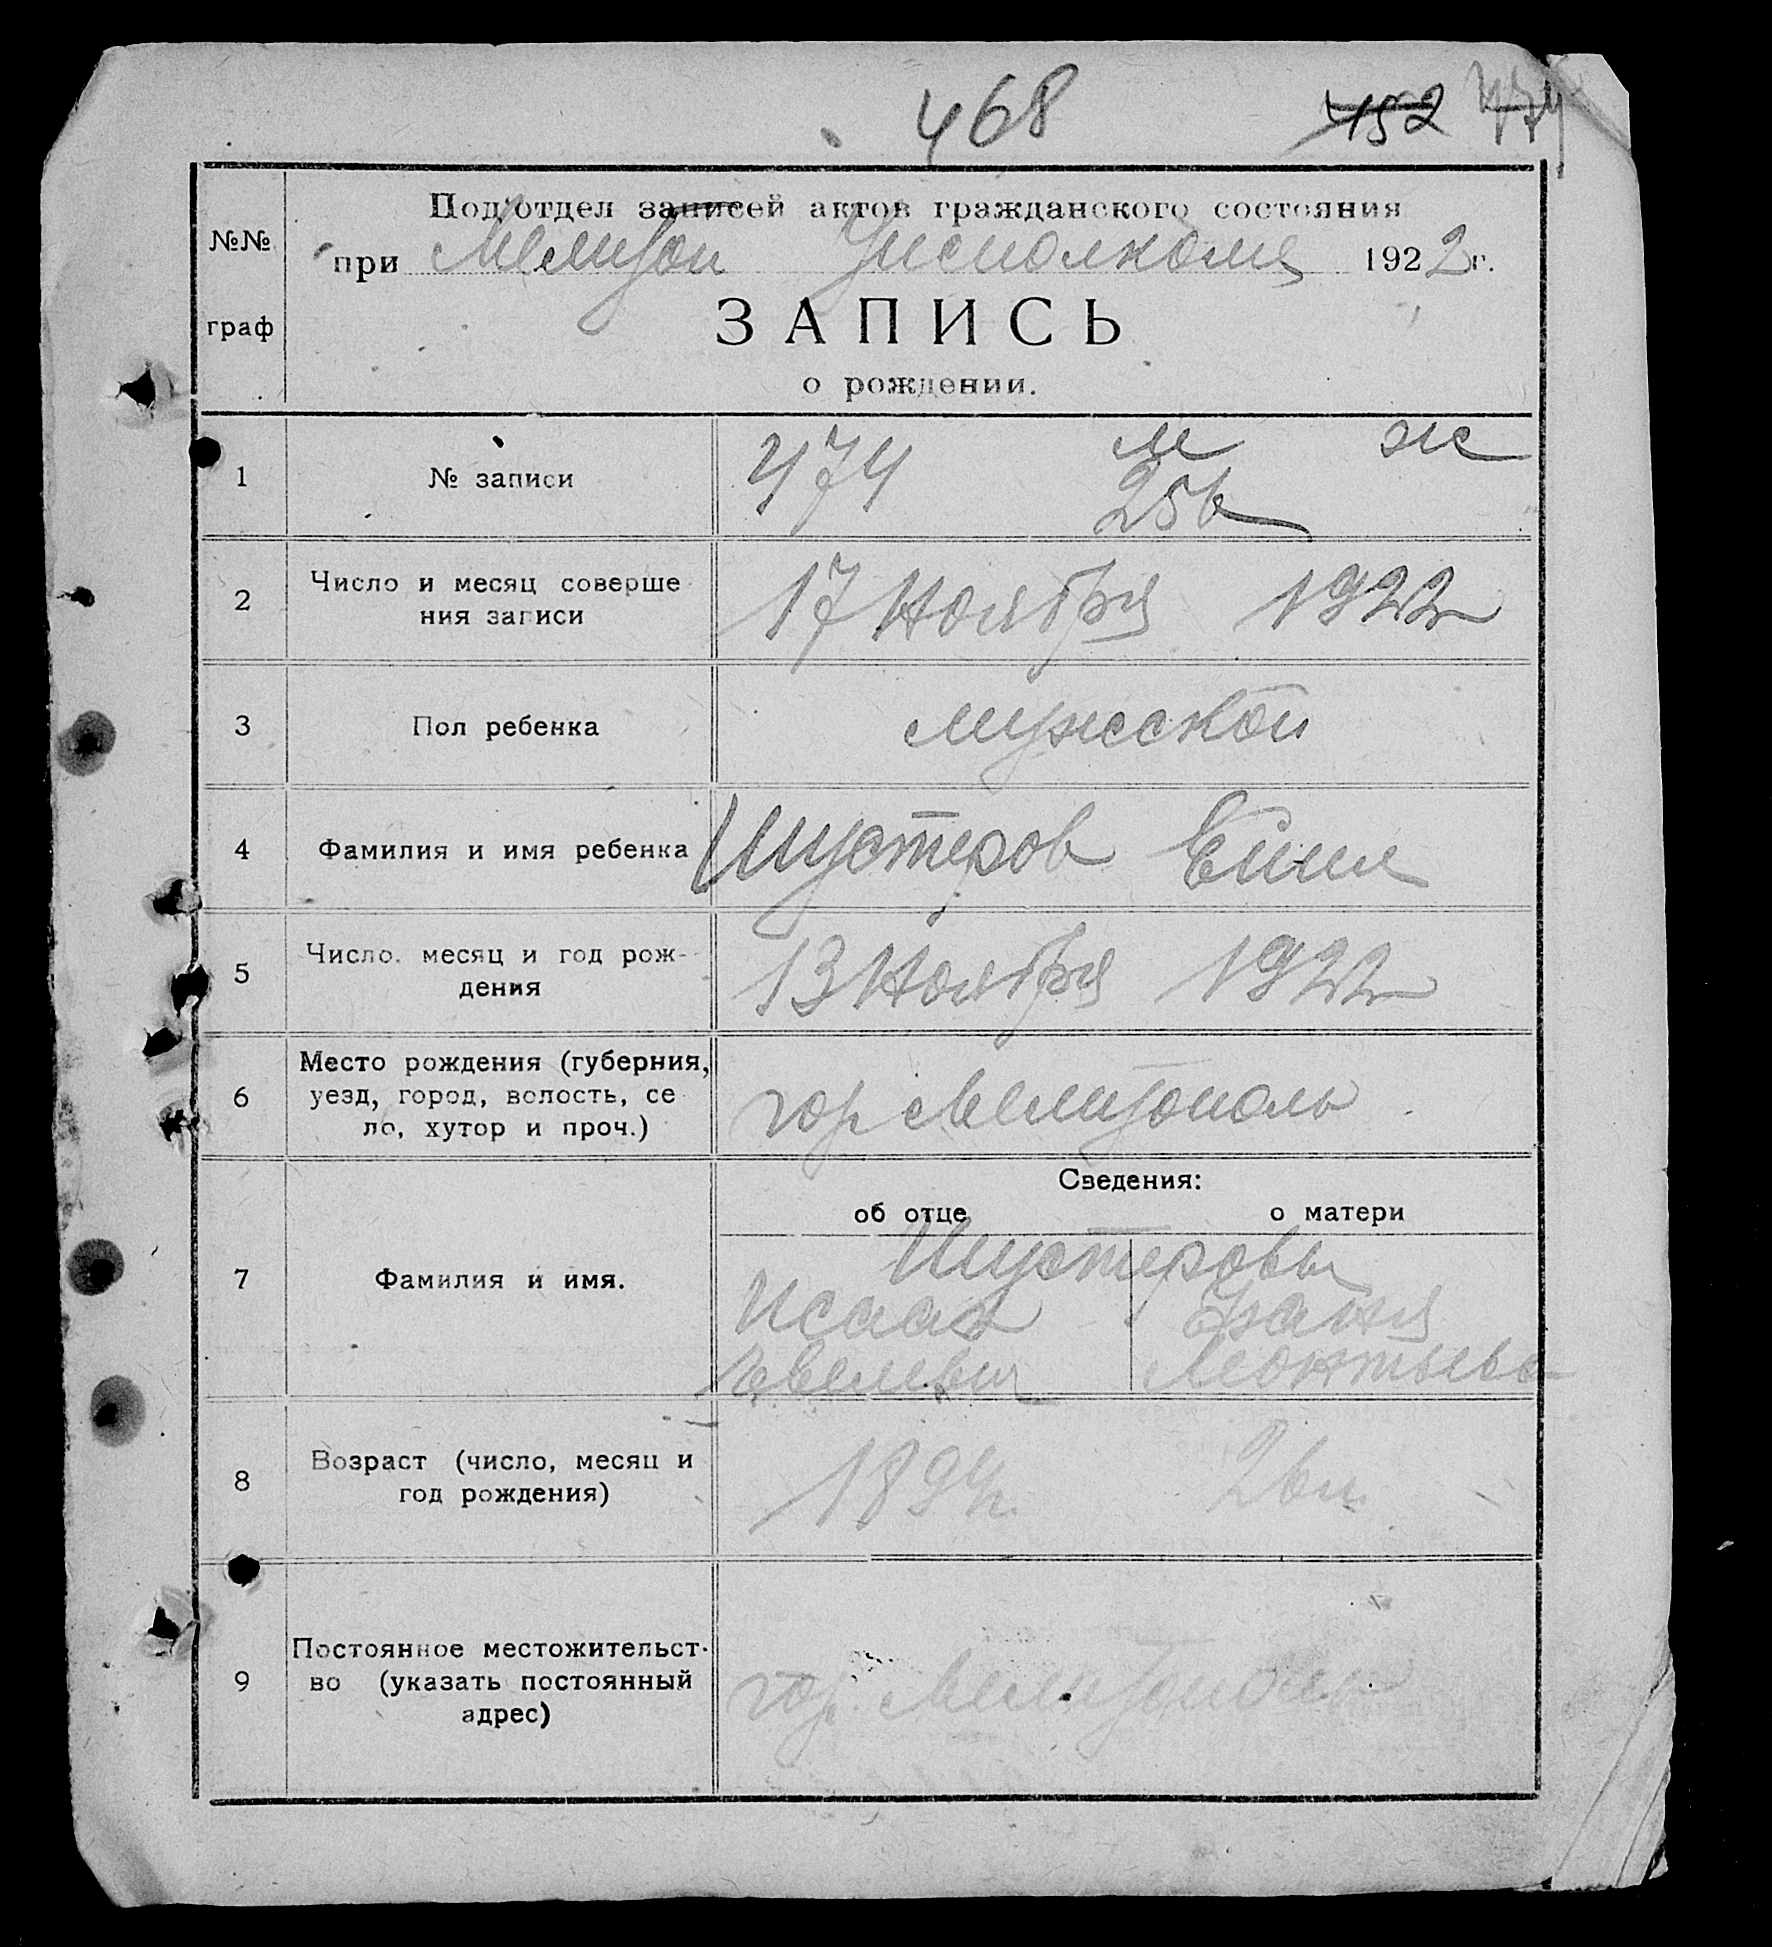 468 452 474
Подотдел записей актов гражданского состояния
при Мелитоп Уисполкоме 1922 г.
№№
граф
ЗАПИСЬ
о рождении.
1 № записи 474 м ж
256
2 Число и месяц соверше
ния записи 17 Ноября 1922
3 Пол ребенка мужской
4 Фамилия и имя ребенка Шустеров
5 Число. месяц и год рож-
дения 13 Ноября 1922
6 Место рождения (губерния,
уезд, город, волость, се
ло, хутор и проч.) гор Мелитополь
Сведения:
об отце о матери
7 Фамилия и имя. Шустеровы
Исаак Фаня
Леонтьева
8 Возраст (число, месяц и
год рождения) 1894 г. 26 л.
9 Постоянное местожительст-
во (указать постоянный
адрес) гор. Мелитополь